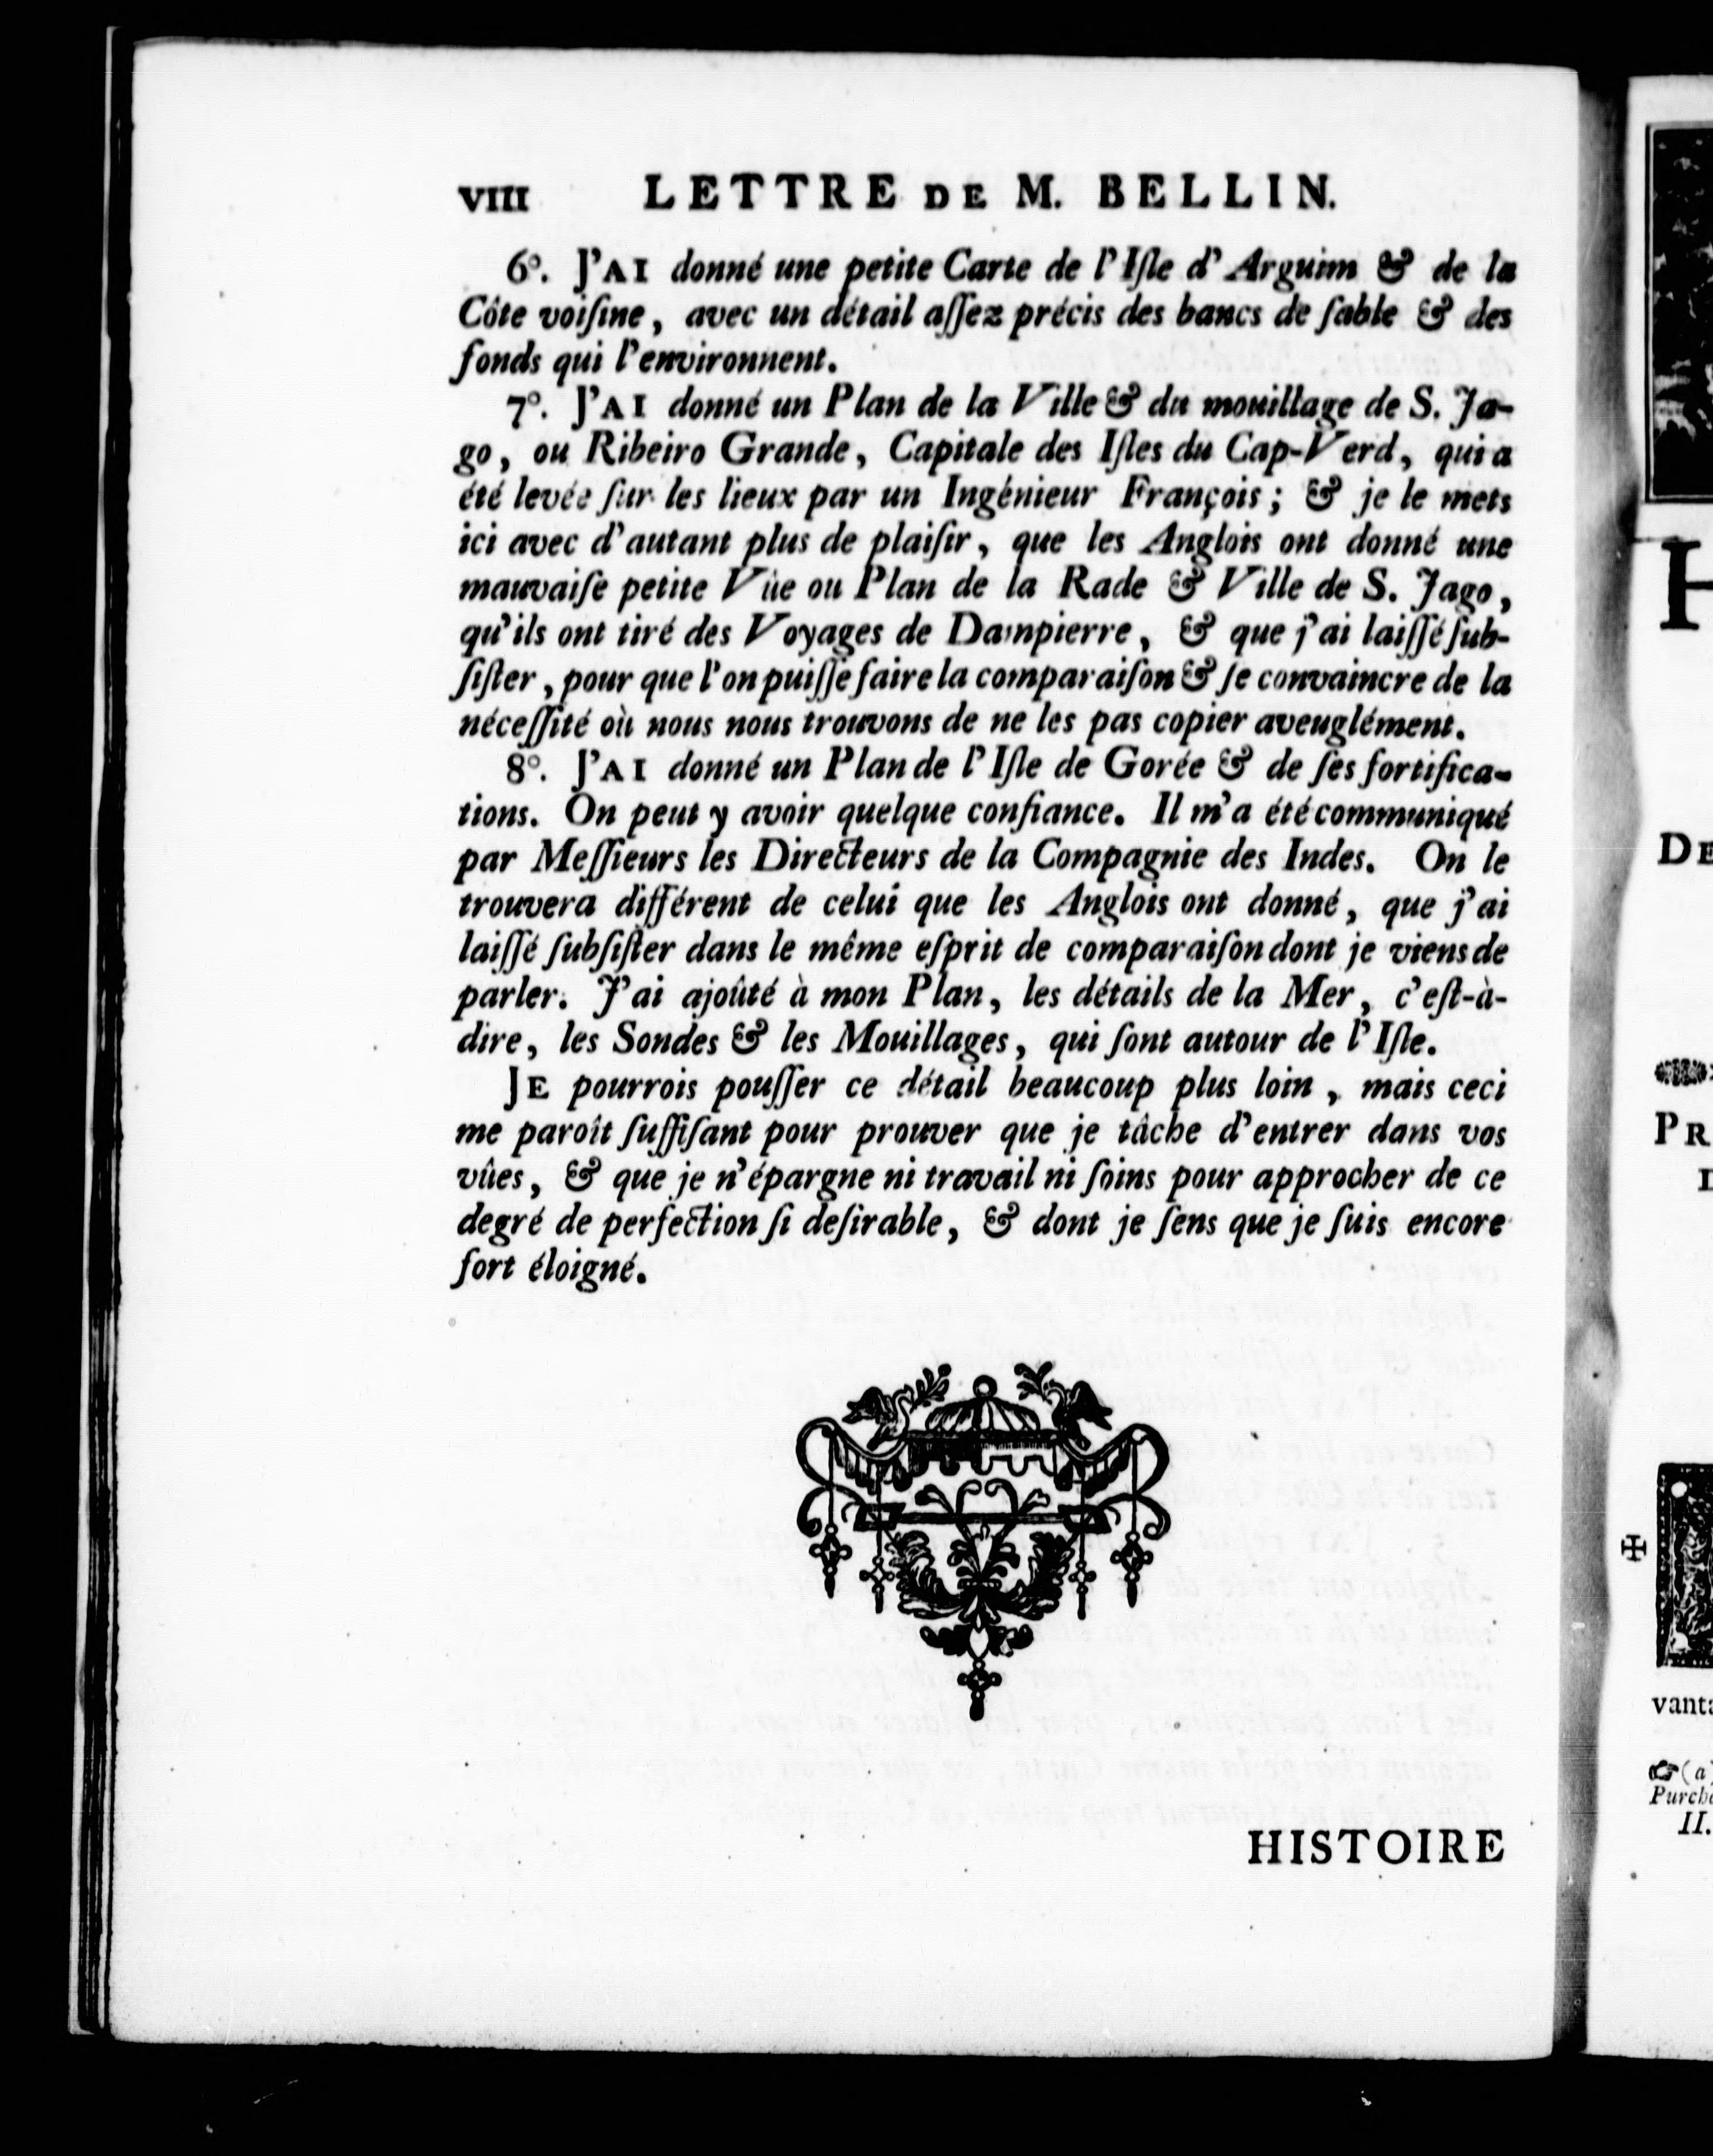 VIII LETTRE DE M. BELLIN.
6°. J'AI donné une petite Carte de l'Iſle d'Arguim & de la
Côte voiſine, avec un détail aſſez précis des bancs de ſable & des
fonds qui l'environnent.
7°. J'AI donné un Plan de la Ville & du mouillage de S. Ja-
go, ou Ribeiro Grande, Capitale des Iſles du Cap-Verd, qui a
été levée ſur les lieux par un Ingénieur François; & je le mets
ici avec d'autant plus de plaiſir, que les Anglois ont donné une
mauvaiſe petite Vûe ou Plan de la Rade & Ville de S. Jago,
qu'ils ont tiré des Voyages de Dampierre, & que j'ai laiſſé ſub-
ſiſter, pour que l'on puiſſe faire la comparaiſon & ſe convaincre de la
néceſſité où nous nous trouvons de ne les pas copier aveuglément.
8°. J'AI donné un Plan de l'Iſle de Gorée & de ſes fortifica-
tions. On peut y avoir quelque confiance. Il m'a été communiqué
par Meſſieurs les Directeurs de la Compagnie des Indes. On le
trouvera différent de celui que les Anglois ont donné, que j'ai
laiſſé ſubſiſter dans le même eſprit de comparaiſon dont je viens de
parler. J'ai ajoûté à mon Plan, les détails de la Mer, c'eſt-à-
dire, les Sondes & les Mouillages, qui ſont autour de l'Iſle.
JE pourrois pouſſer ce détail beaucoup plus loin, mais ceci
me paroît ſuffiſant pour prouver que je tâche d'entrer dans vos
vûes, & que je n'épargne ni travail ni ſoins pour approcher de ce
degré de perfection ſi deſirable, & dont je ſens que je ſuis encore
fort éloigné.
HISTOIRE
H
DE
PR
vanta
(a)
II.